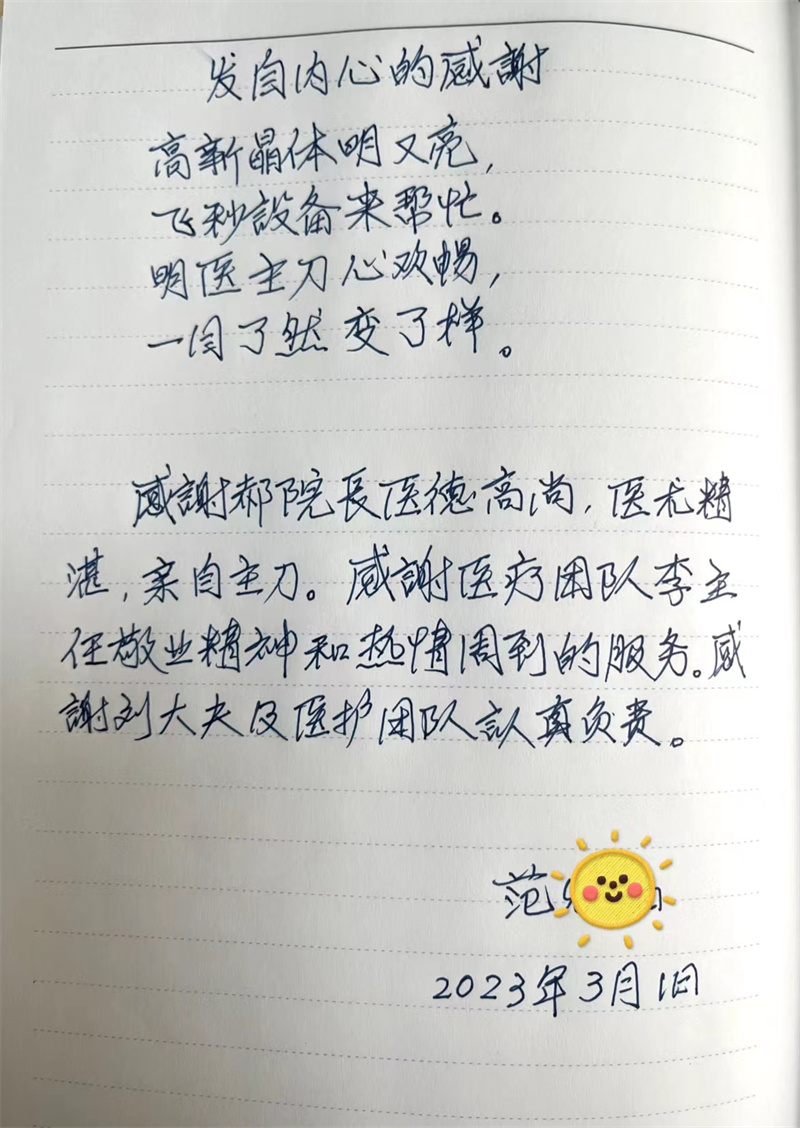 发自内心的感謝
高新晶体明又亮，
飞秒設备来帮忙。
明医主刀心欢暢，
一目了然变了样。
感謝郝院長医德高尚，医尤精
湛，亲自主刀。感謝医疗团队李主
任敬业精神和热情周到的服务。感
謝刘大夫及医护团队認真负责。
范
2023年3月1日